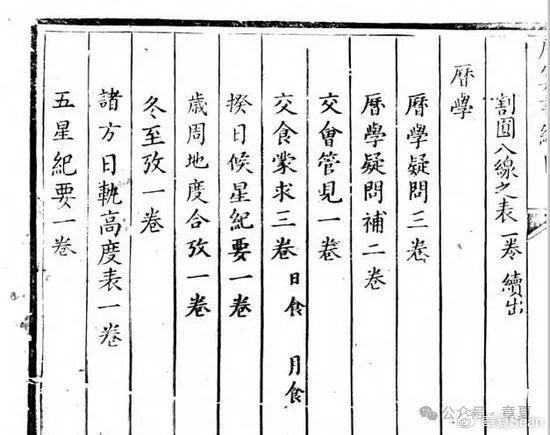 割圓八線之表一卷 續出
曆學
曆學疑問三卷
曆學疑問補二卷
交會管見一卷
交食蒙求三卷 日食 月食
揆日候星紀要一卷
歲周地度合攷一卷
冬至攷一卷
諸方日軌高度表一卷
五星紀要一卷
公众号·章夏
章夏Sean